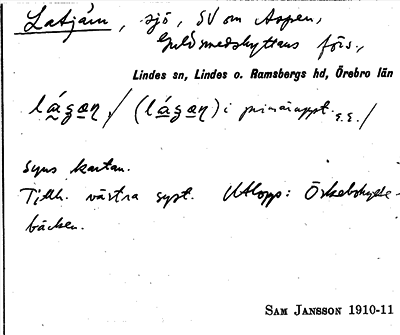 Latjärn, sjö, SV om Aspen,
Guldsmedshyttans förs.,
Lindes sn, Lindes o. Ramsbergs hd, Örebro län
i primäruppt. S.S./
Syns kartan.
Tillh. västra syst. Utlopp: Öskebohytte-
bäcken.
SAM JANSSON 1910-11